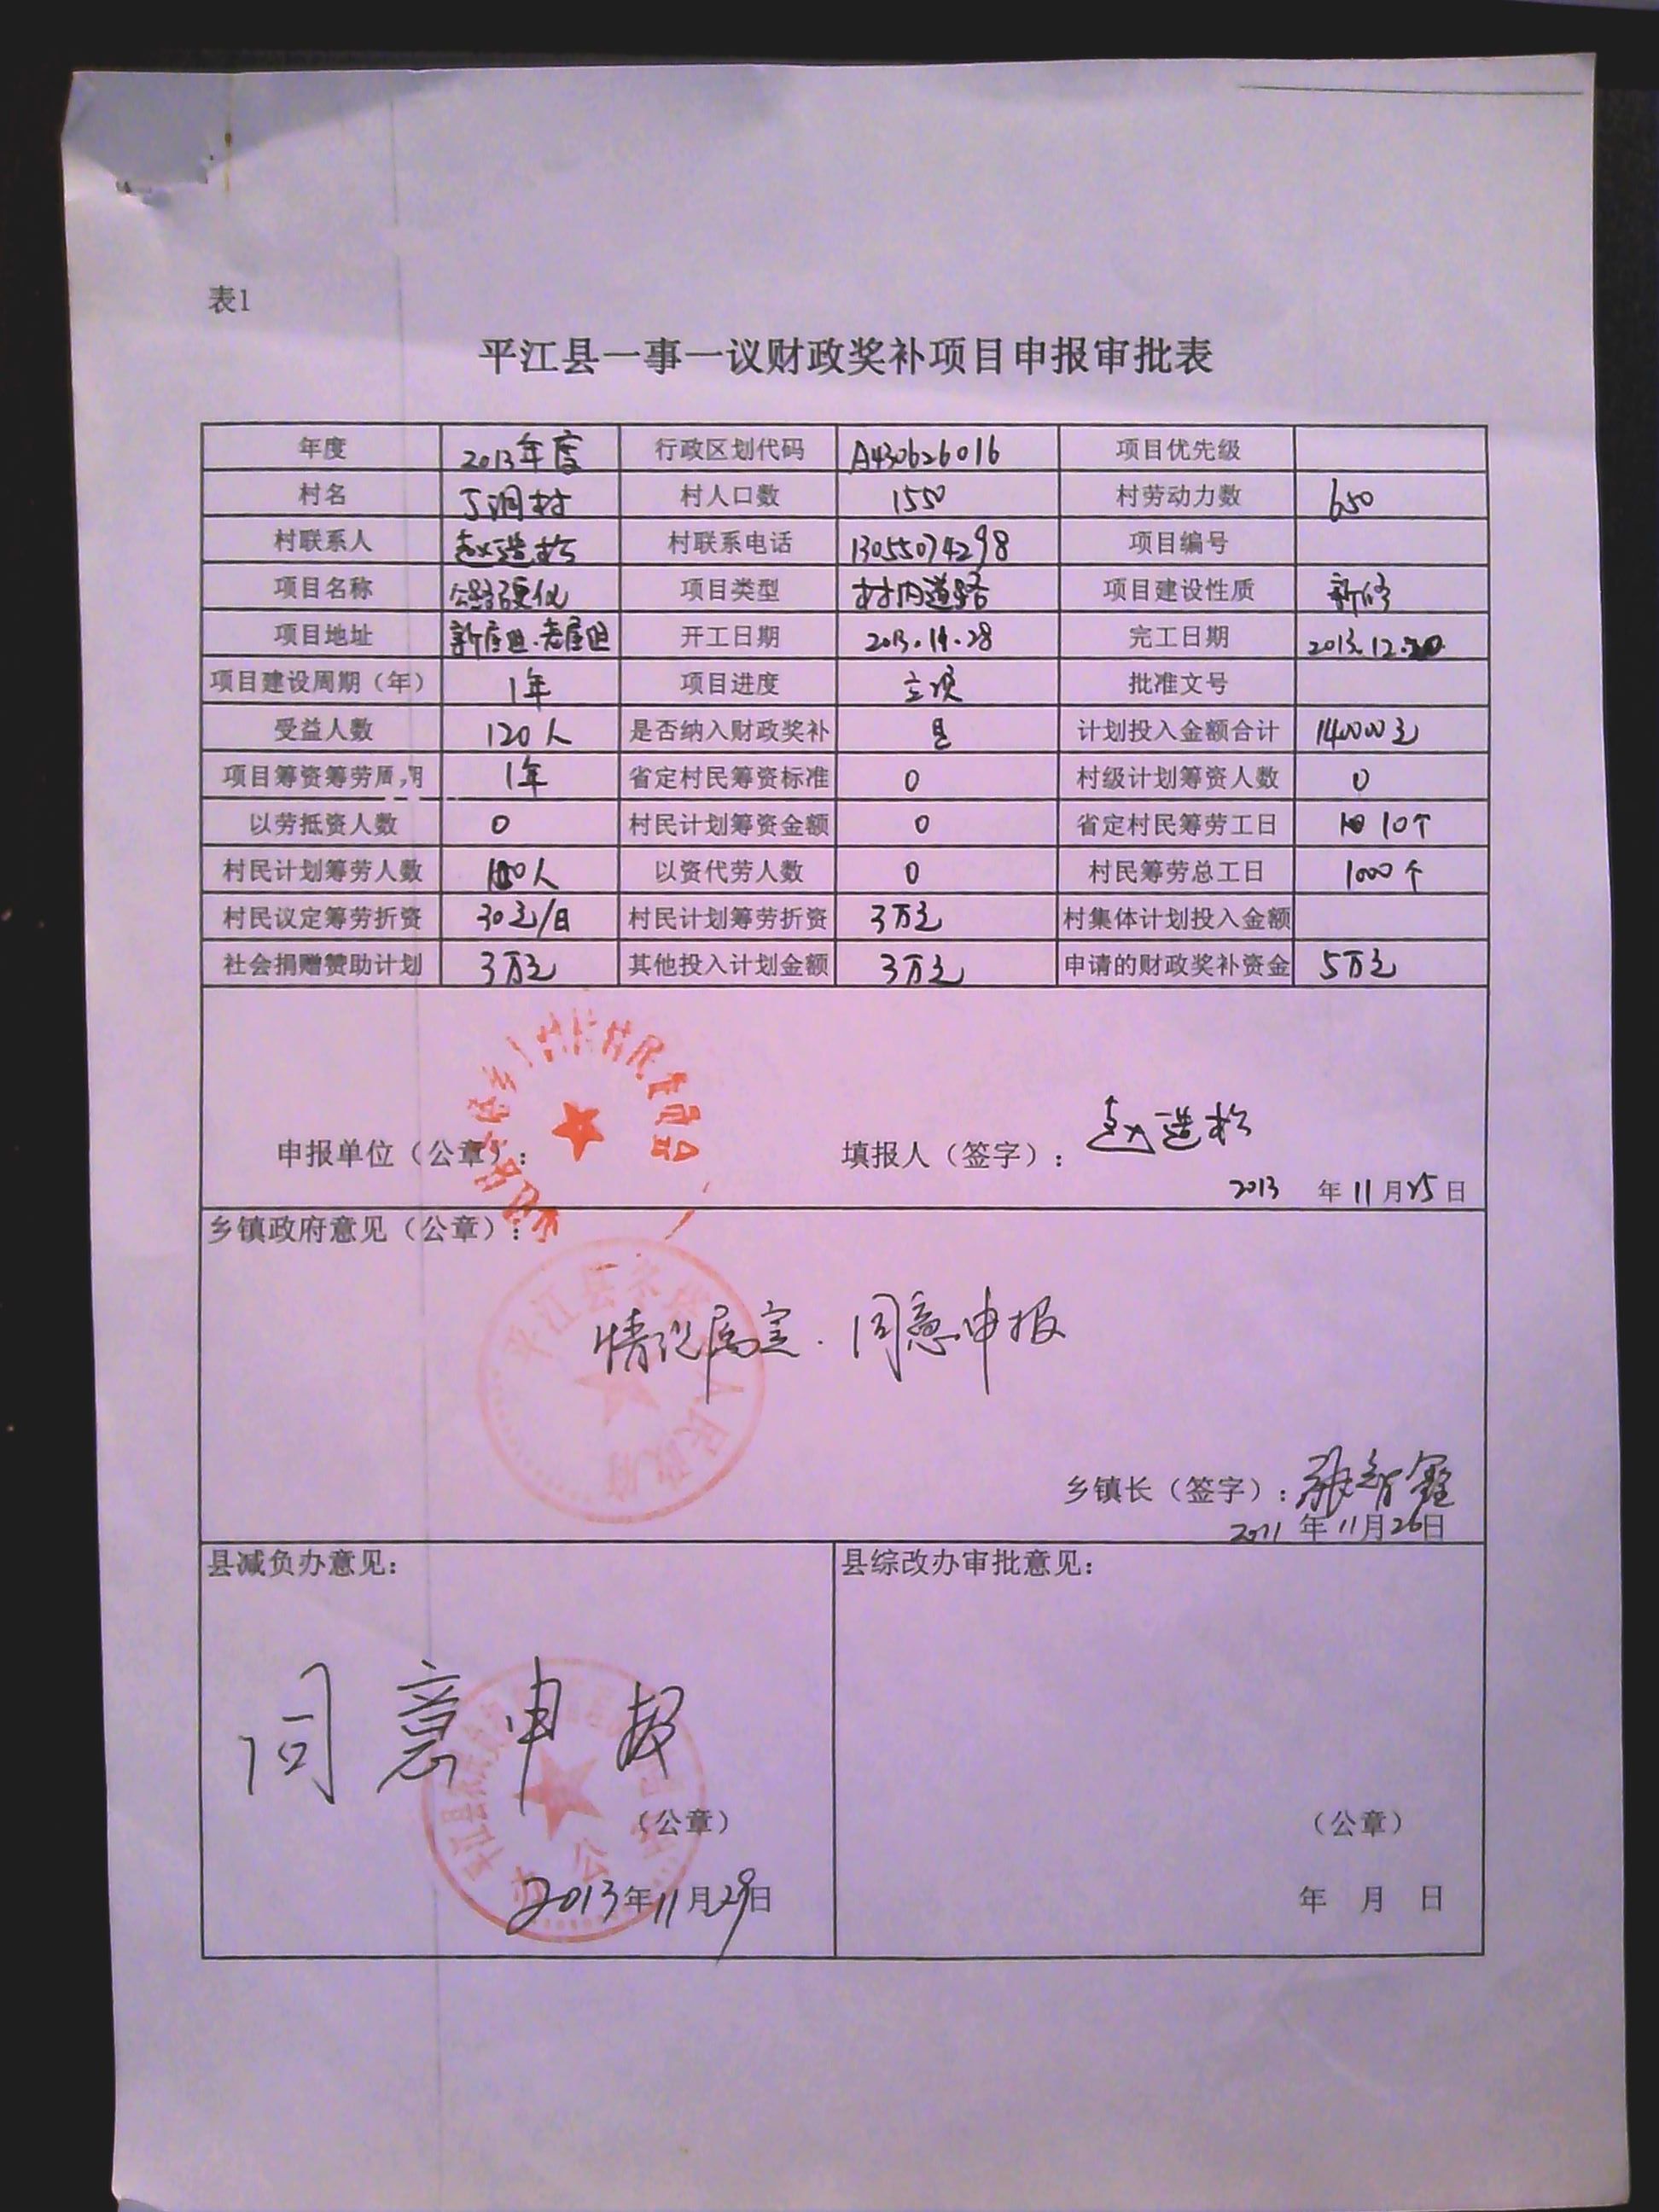 表1
平江县一事一议财政奖补项目申报审批表
年度 2013年度 行政区划代码 A430626016 项目优先级
村名 丁洞村 村人口数 1550 村劳动力数 650
村联系人 赵造松 村联系电话 13055074298 项目编号
项目名称 公路硬化 项目类型 村内道路 项目建设性质 新修
项目地址 新屋组.老屋组 开工日期 2013.11.28 完工日期 2013.12.20
项目建设周期（年） 1年 项目进度 立项 批准文号
受益人数 120人 是否纳入财政奖补 是 计划投入金额合计 140000元
项目筹资筹劳周期 1年 省定村民筹资标准 0 村级计划筹资人数 0
以劳抵资人数 0 村民计划筹资金额 0 省定村民筹劳工日 10个
村民计划筹劳人数 100人 以资代劳人数 0 村民筹劳总工日 1000个
村民议定筹劳折资 30元/日 村民计划筹劳折资 3万元 村集体计划投入金额
社会捐赠赞助计划 3万元 其他投入计划金额 3万元 申请的财政奖补资金 5万元
申报单位（公章）： 填报人（签字）： 赵造松
2013 年11月25日
乡镇政府意见（公章）：
平江县 人民政府
情况属实.同意申报
乡镇长（签字）：
2011年11月26日
县减负办意见： 县综改办审批意见：
同意申报
（公章） （公章）
2013年11月29日 年 月 日